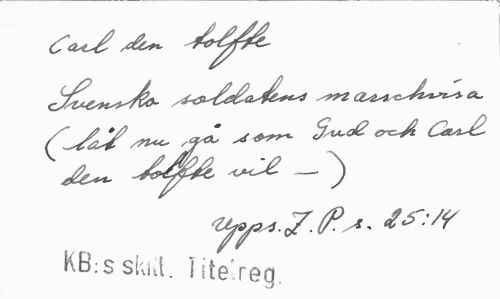 Carl den tolfte
Svenska soldatens marschvisa
(låt nu gå som Gud och Carl
den tolfte vil —)
Upps. Z. P. s. 25:14
KB:s skill. Titelreg.